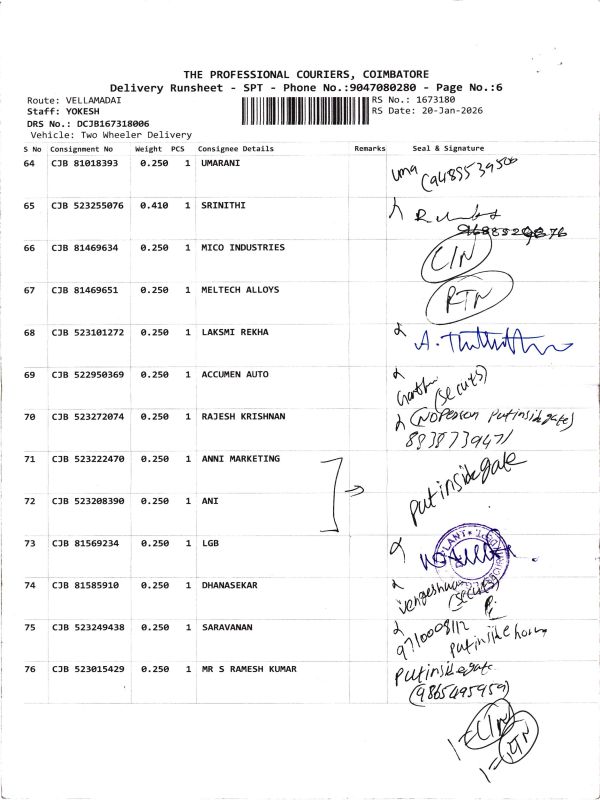 THE PROFESSIONAL COURIERS, COIMBATORE
Delivery Runsheet - SPT - Phone No.:9047080280 - Page No.:6
Route: VELLAMADAI RS No.: 1673180
Staff: YOKESH RS Date: 20-Jan-2026
DRS No.: DCJB167318006
Vehicle: Two Wheeler Delivery
S No Consignment No Weight PCS Consignee Details Remarks Seal & Signature
64 CJB 81018393 0.250 1 UMARANI
uma
65 CJB 523255076 0.410 1 SRINITHI
66 CJB 81469634 0.250 1 MICO INDUSTRIES
67 CJB 81469651 0.250 1 MELTECH ALLOYS
RTN
68 CJB 523101272 0.250 1 LAKSMI REKHA
69 CJB 522950369 0.250 1 ACCUMEN AUTO
70 CJB 523272074 0.250 1 RAJESH KRISHNAN (NO Person putinside gate)
8838739471
71 CJB 523222470 0.250 1 ANNI MARKETING
putinside gate
72 CJB 523208390 0.250 1 ANI
73 CJB 81569234 0.250 1 LGB
74 CJB 81585910 0.250 1 DHANASEKAR
75 CJB 523249438 0.250 1 SARAVANAN
putinside
76 CJB 523015429 0.250 1 MR S RAMESH KUMAR putinside gate
(9865495959)